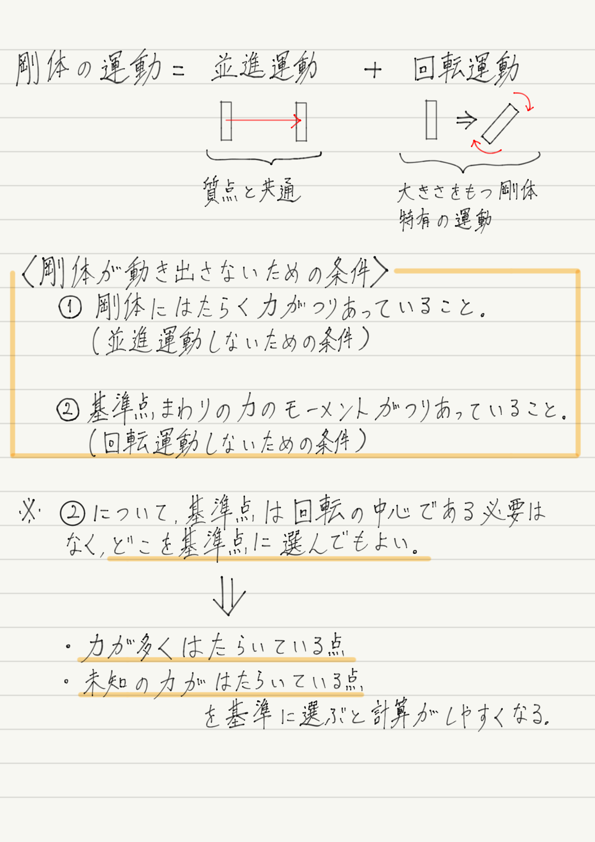 剛体の運動 = 並進運動 + 回転運動
質点と共通
大きさをもつ剛体
特有の運動
〈剛体が動き出さないための条件〉
① 剛体にはたらく力がつりあっていること。
(並進運動しないための条件)
② 基準点まわりの力のモーメントがつりあっていること。
(回転運動しないための条件)
※ ②について、基準点は回転の中心である必要は
なく、どこを基準点に選んでもよい。
・力が多くはたらいている点
・未知の力がはたらいている点
を基準に選ぶと計算がしやすくなる。